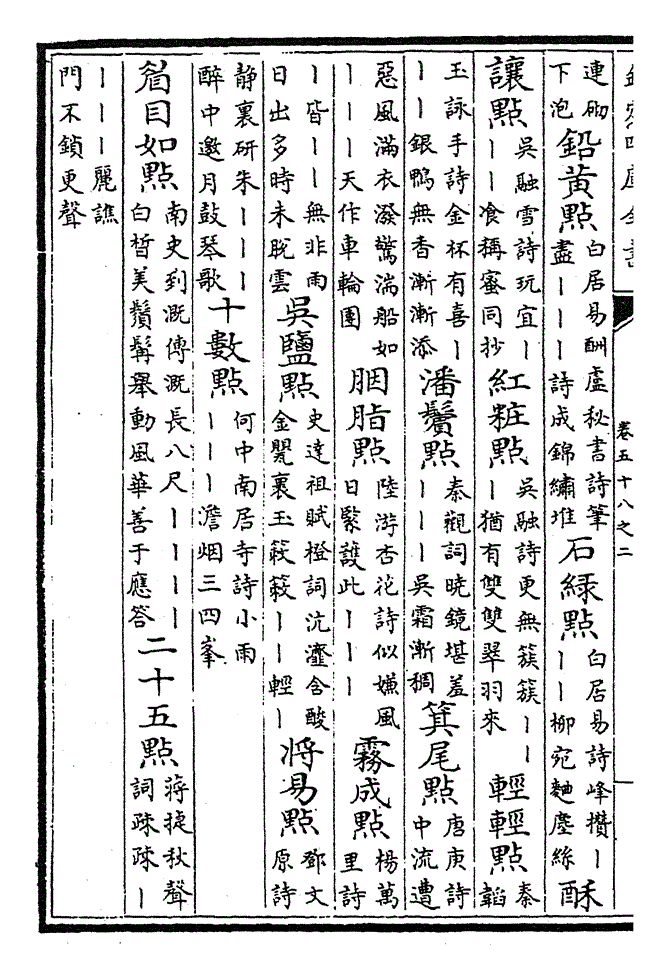 欽定四庫全書 卷五十八之二
連砌下泡 鉛黃點 白居易酬盧秘書詩筆盡丨丨丨詩成錦繡堆 石緑點 白居易詩峰攢丨丨丨栁宛麯塵絲 酥
讓點 吳融雪詩玩宜丨丨丨飡稱蜜同抄 紅粧點 吳融詩更無簇簇丨丨丨猶有雙雙翠羽來 輕輕點 秦韜
玉詠手詩金杯有喜丨丨丨銀鴨無香漸漸添 潘鬢點 秦觀詞曉鏡堪羞丨丨丨吳霜漸稠 箕尾點 唐庚詩中流遭
惡風滿衣潑驚湍船如丨丨丨天作車輪團 胭脂點 陸游杏花詩似嫌風日緊護此丨丨丨 霧成點 楊萬里詩
丨皆丨丨無非雨日出多時未脫雲 吳鹽點 史達祖賦橙詞沆瀣含酸金甖裏玉簌簌丨丨輕丨 將易點 鄧文原詩
靜裏研朱丨丨丨醉中邀月鼓琴歌 十數點 何中南居寺詩小雨丨丨丨澹烟三四峯
眉目如點 南史到溉傳溉長八尺丨丨丨丨白晳美鬚髯舉動風華善于應答 二十五點 蔣捷秋聲詞疎疎丨
丨丨丨麗譙門不鎖更聲